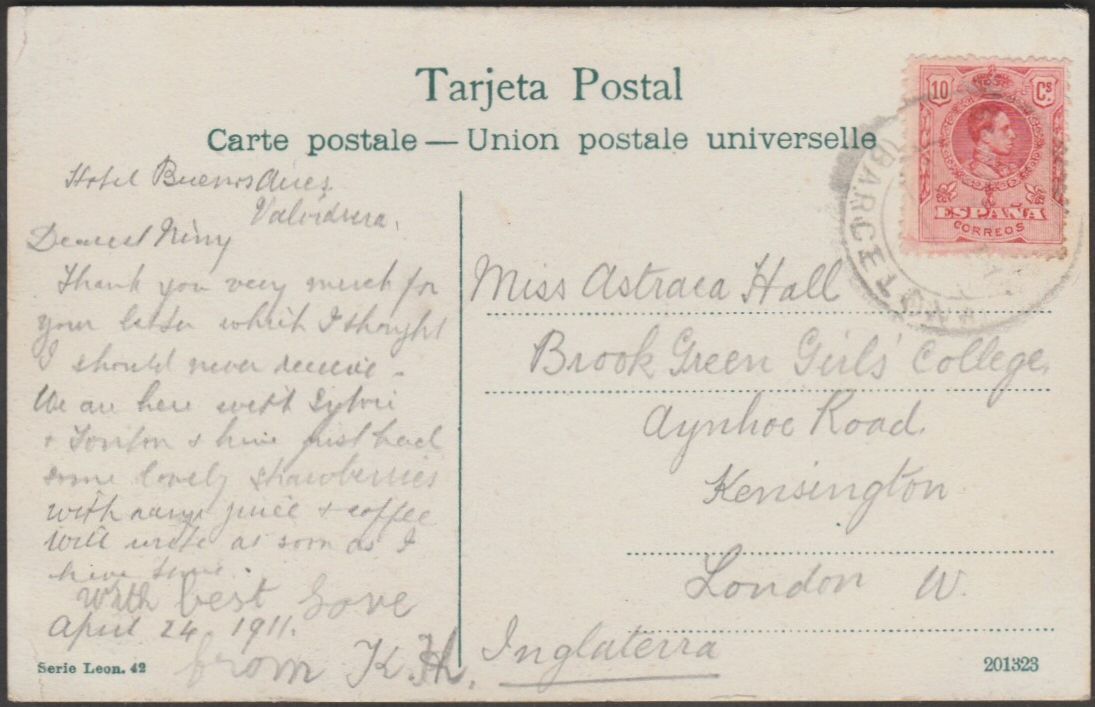 Tarjeta Postal
Carte postale — Union postale universelle
10 Cs.
ESPAÑA
CORREOS
BARCELONA
Hotel Buenos Aires
Valvidrera,
Dearest Niny
Thank you very much for
your letter which I thought
I should never receive -
We are here with
& & have just had
some lovely strawberries
with juice & coffee
Will write as soon as I
have time.
With best Love
April 24 1911.
from K.H.
Serie Leon. 42
Miss Astraea Hall
Brook Green Girls' College,
Aynhoe Road.
Kensington
London W.
Inglaterra
201323